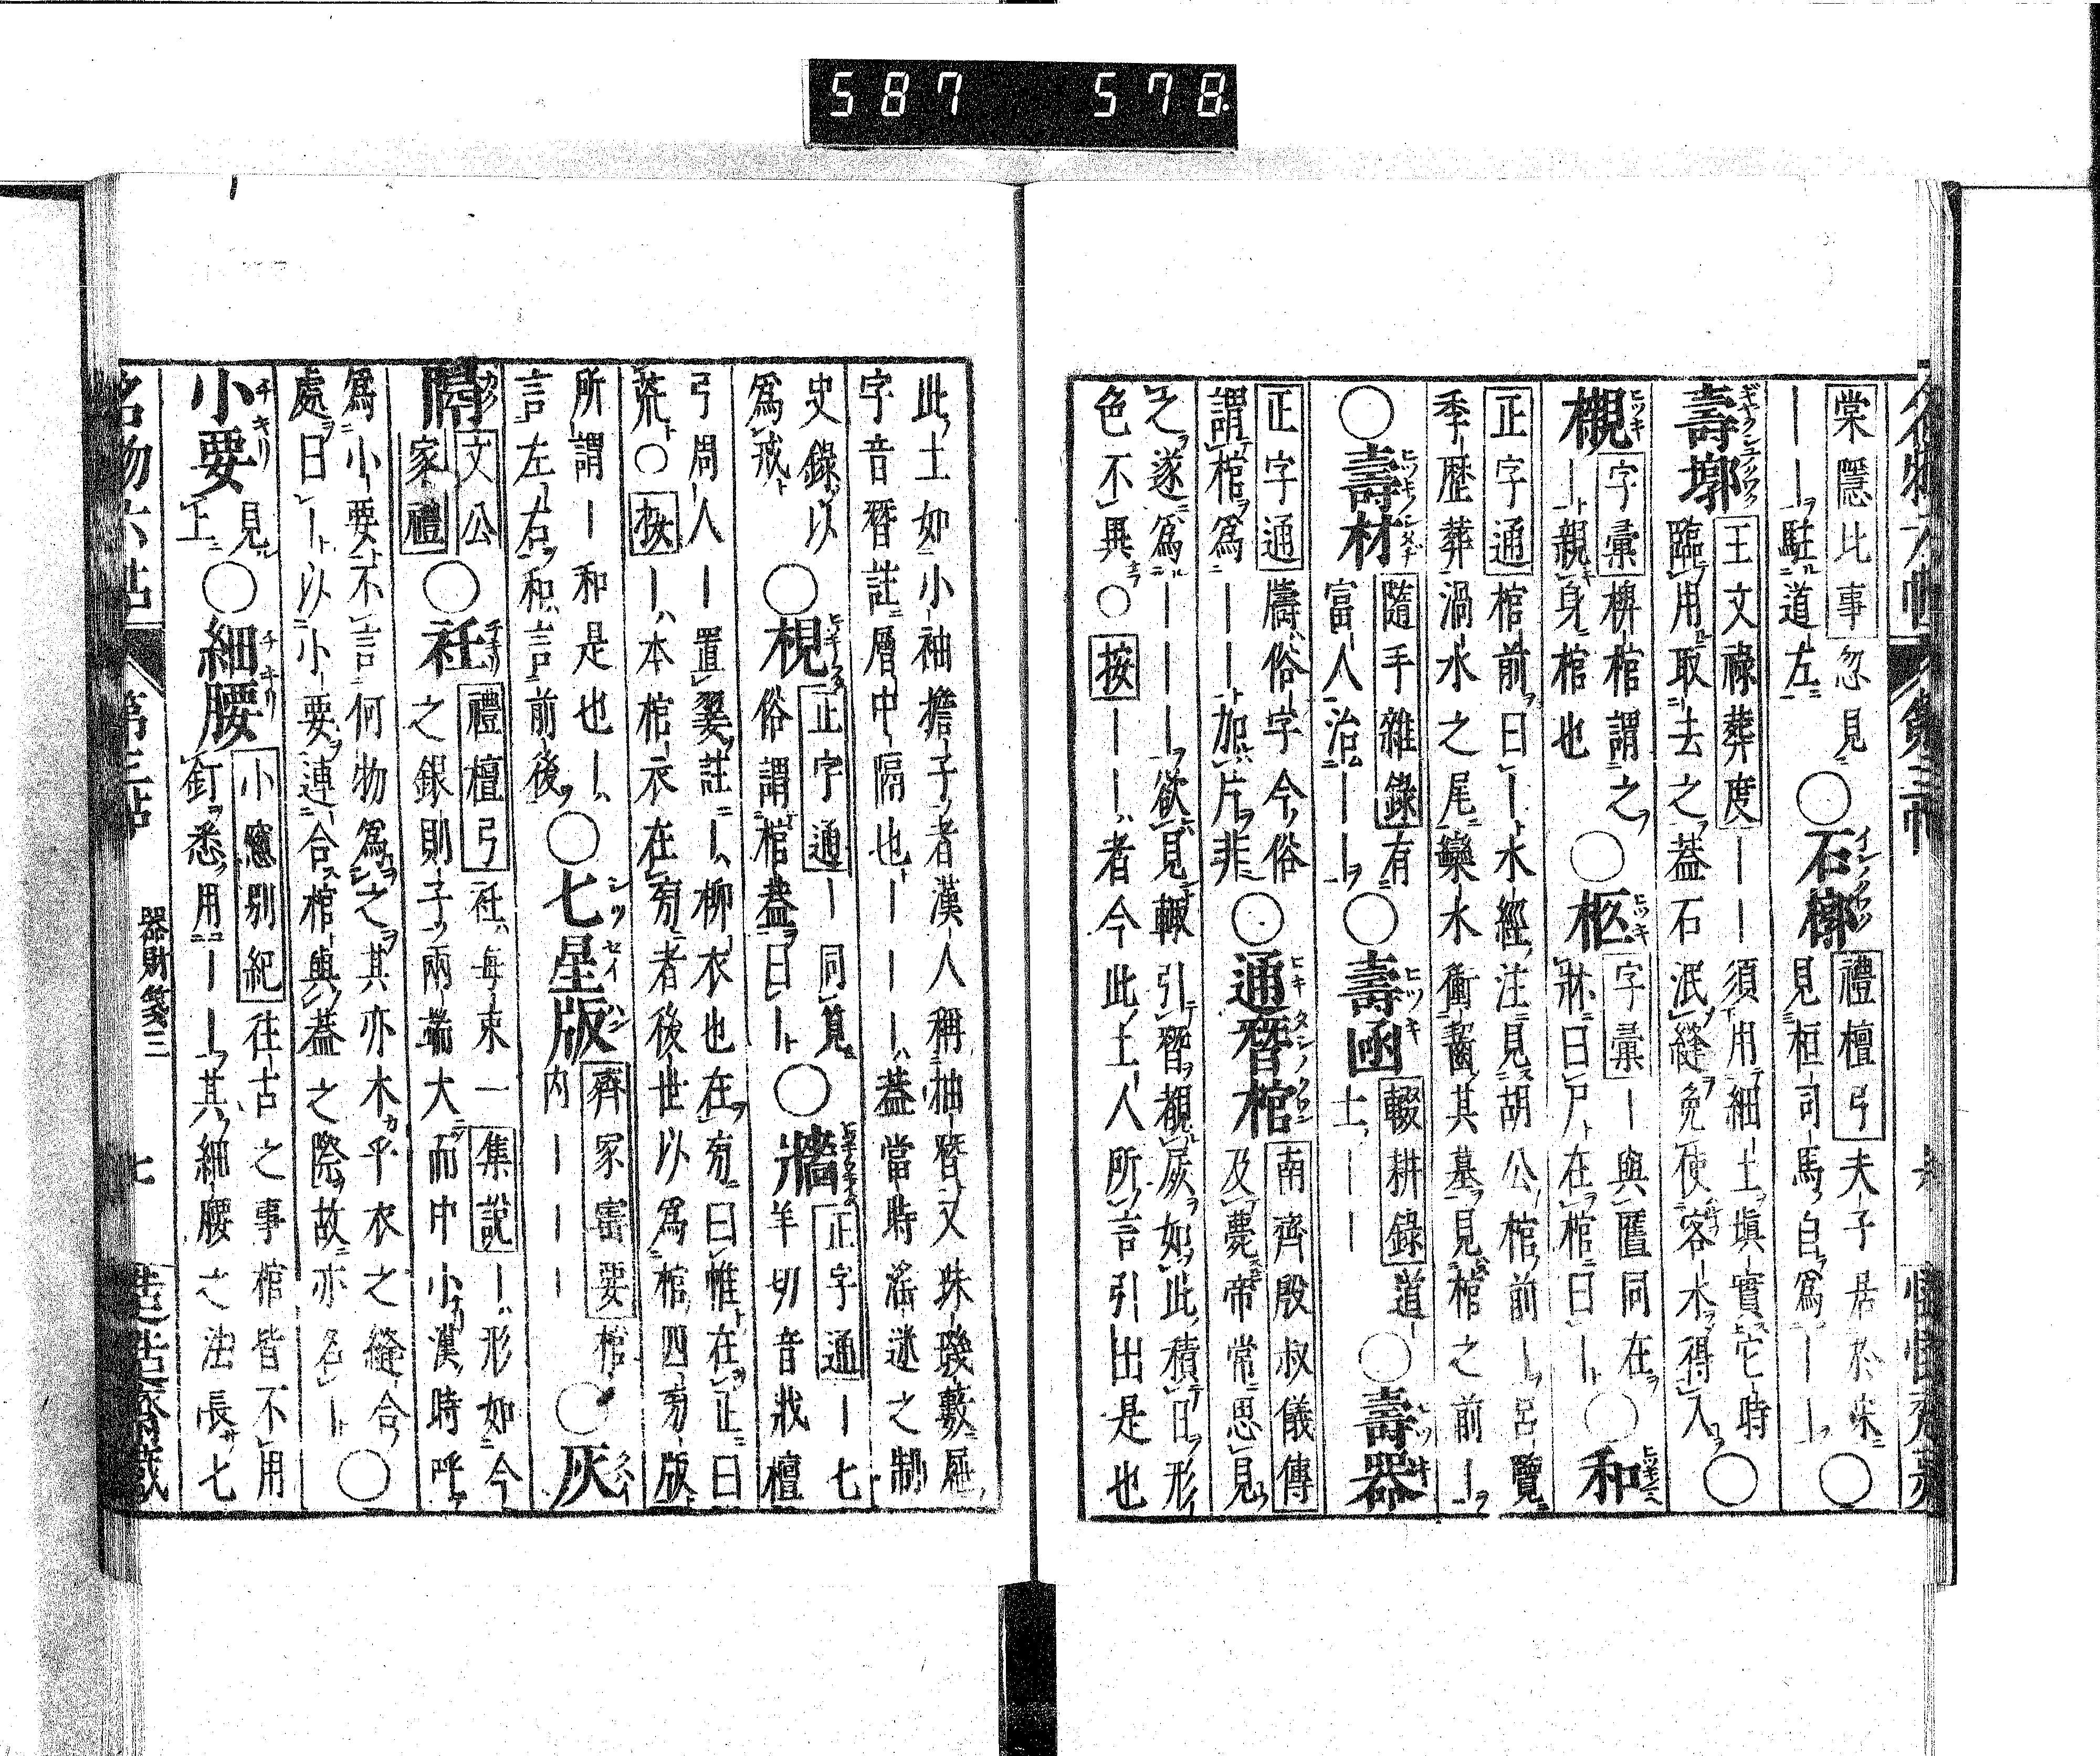 587 578
棠隱比事忽見
｜｜駐道左
○石槨禮檀弓夫子居於宋
見桓司馬自爲｜｜○
壽墎王文祿葬度｜｜須用細土塡實它時
臨用取去之蓋石泯縫免使客水得入○
櫬字彙椑棺謂之
｜親身棺也
○柩字彙｜與匶同在
牀曰尸在棺曰｜
○和
正字通棺前曰｜水經注見胡公棺前｜呂覽
季歷葬渦水之尾欒水衝齧其墓見棺之前｜
○壽材隨手雜錄有
富人治｜｜
○壽凾輟耕錄道
士｜｜
○壽器
正字通
俗字今俗
謂棺爲｜｜加片非
○通朁棺南齊殷叔儀傳
及薨帝常思見
之遂爲｜｜｜欲見輒引朁覩屍如此積日形
色不異○按｜｜者今此土人所言引出是也
此土如小袖擔子者漢人稱抽朁又珠璣藪屜
字音朁註層中隔也｜｜｜蓋當時滛迷之制
史錄以
爲戒
○梘正字通｜同筧
俗謂棺蓋曰｜
○牆正字通｜七
羊切音戕檀
弓周人｜置翣註｜柳衣也在旁曰帷在正曰
荒○按｜本棺衣在旁者後世以爲棺四旁版
所謂｜和是也｜
言左右和言前後
○七星版齊家寶要棺
内｜｜｜
○灰
隔文公
家禮
○衽禮檀弓衽每束一集說｜形如今
之銀則子兩端大而中小漢時呼
爲小要不言何物爲之其亦木乎衣之縫合
處曰｜以小要連合棺與蓋之際故亦名｜○
小要見
上
○細腰小窻別紀往古之事棺皆不用
釘悉用｜｜其細腰之法長七
名物六帖 第三帖 器財箋三 七